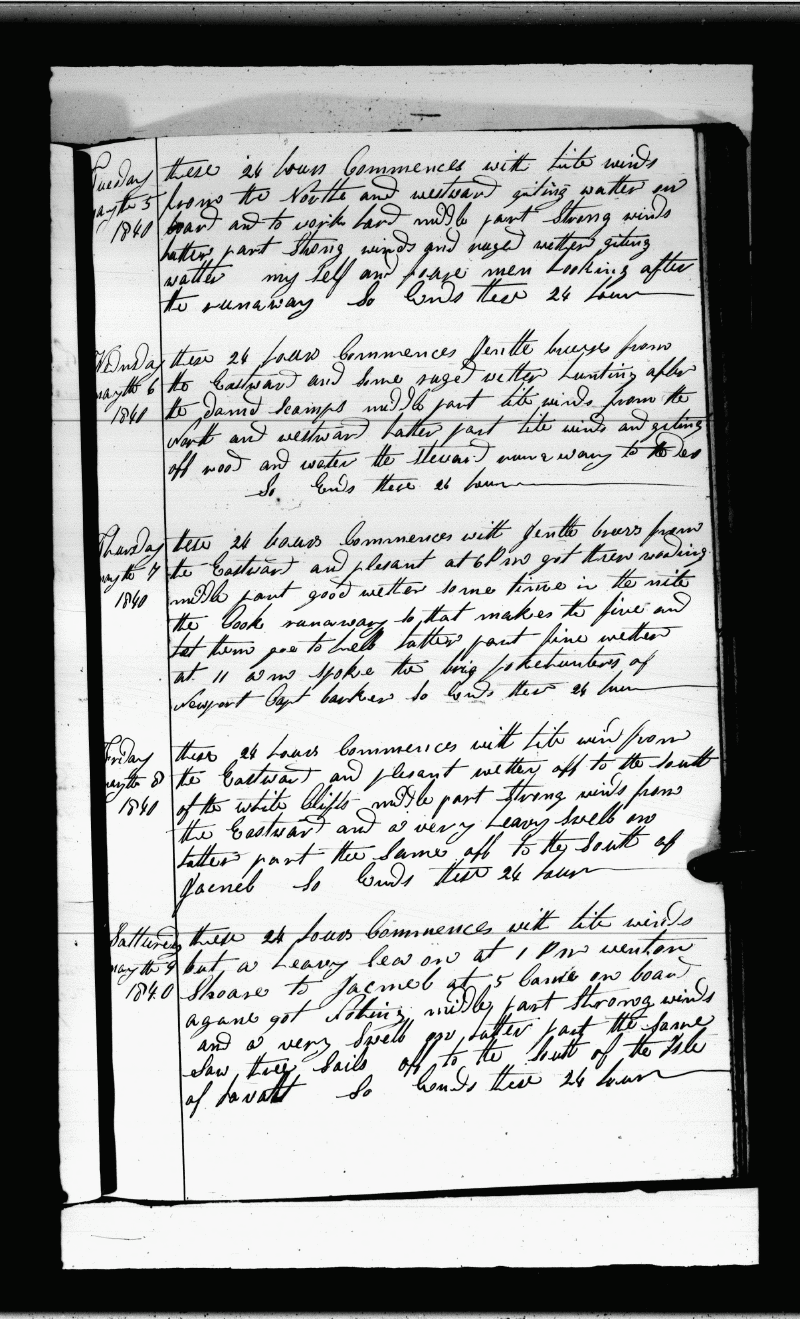 Tuesday these 24 hours Commences with lite winds
may the 5 from the North and westward giting watter on
1840 board and to work hard middle part Strong winds
latter part Strong winds and ruged wether giting
watter my self and men Looking after
the runaway So Ends these 24 hours
Wednsday these 24 hours Commences Jentle breezes from
may the 6 the Eastward and Some ruged wether hunting after
1840 the damd Scamps middle part lite winds from the
North and westward Latter part lite winds and giting
off wood and water the Steward runaway to the
So Ends these 24 hours
Thursday these 24 hours Commences with Jentle breezes from
may the 7 the Eastward and plesant at 6 Pm got threw wooding
1840 middle part good wether some time in the nite
the Cook runaway so that makes the five and
let them goe to hell latter part fine wether
at 11 am spoke the brig of
Newport Capt barker So Ends these 24 hours
Friday these 24 hours Commences with lite wind from
may the 8 the Eastward and plesant wether off to the South
1840 of the white Clifts middle part Strong winds from
the Eastward and a very heavy Swell on
latter part the Same off to the South of
Jacmel So Ends these 24 hours
Satturday these 24 hours Commences with lite winds
may the 9 but a heavy Sea on at 1 Pm went on
1840 Shoare to Jacmel at 5 Came on board
agane got Nothing middle part Strong winds
and a very Swell on latter part the Same
Saw three Sails off to the South of the Isle
of So Ends these 24 hours